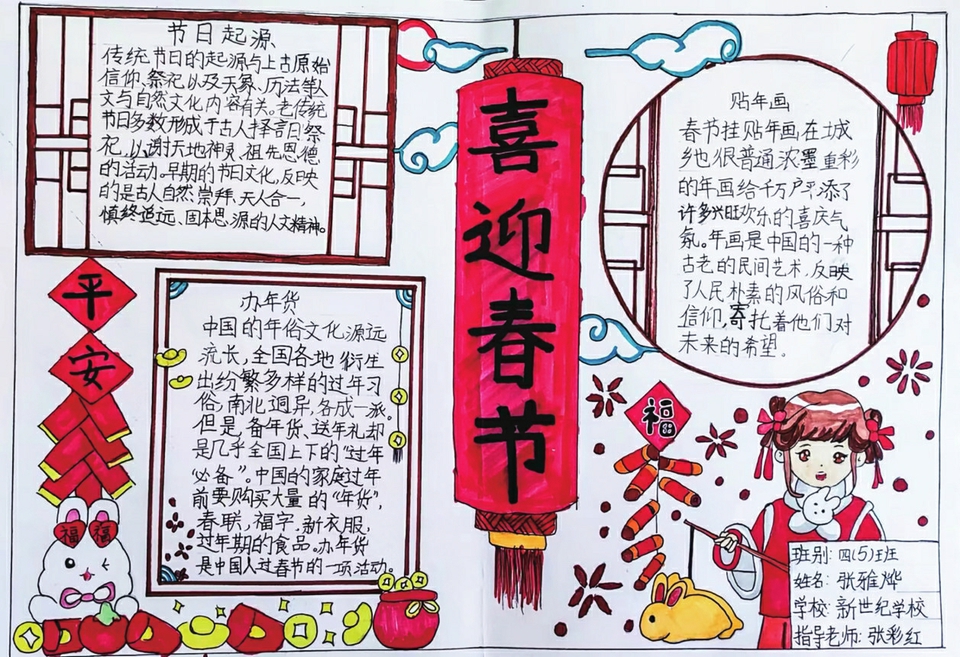 节日起源
传统节日的起源与上古原始
信仰、祭祀以及天象、历法等人
文与自然文化内容有关。老传统
节日多数形成于古人择吉日祭
祀,以谢天地神灵、祖先恩德
的活动。早期的节日文化,反映
的是古人自然崇拜、天人合一,
慎终追远、固本思源的人文精神。
平
安
福
福
办年货
中国的年俗文化源远
流长,全国各地衍生
出纷繁多样的过年习
俗,南北迥异,各成一派。
但是,备年货、送年礼却
是几乎全国上下的“过年
“必备”。中国的家庭过年
前要购买大量的“年货”,
春联,福字,新衣服,
过年期的食品。办年货
是中国人过春节的一项活动。
喜
迎
春
节
贴年画
春节挂贴年画在城
乡也很普遍浓墨重彩
的年画给千万户平添了
许多兴旺欢乐的喜庆气
氛。年画是中国的一种
古老的民间艺术,反映
了人民朴素的风俗和
信仰,寄托着他们对
未来的希望。
福
班别:四(5)班
姓名:张雅烨
学校:新世纪学校
指导老师:张彩红